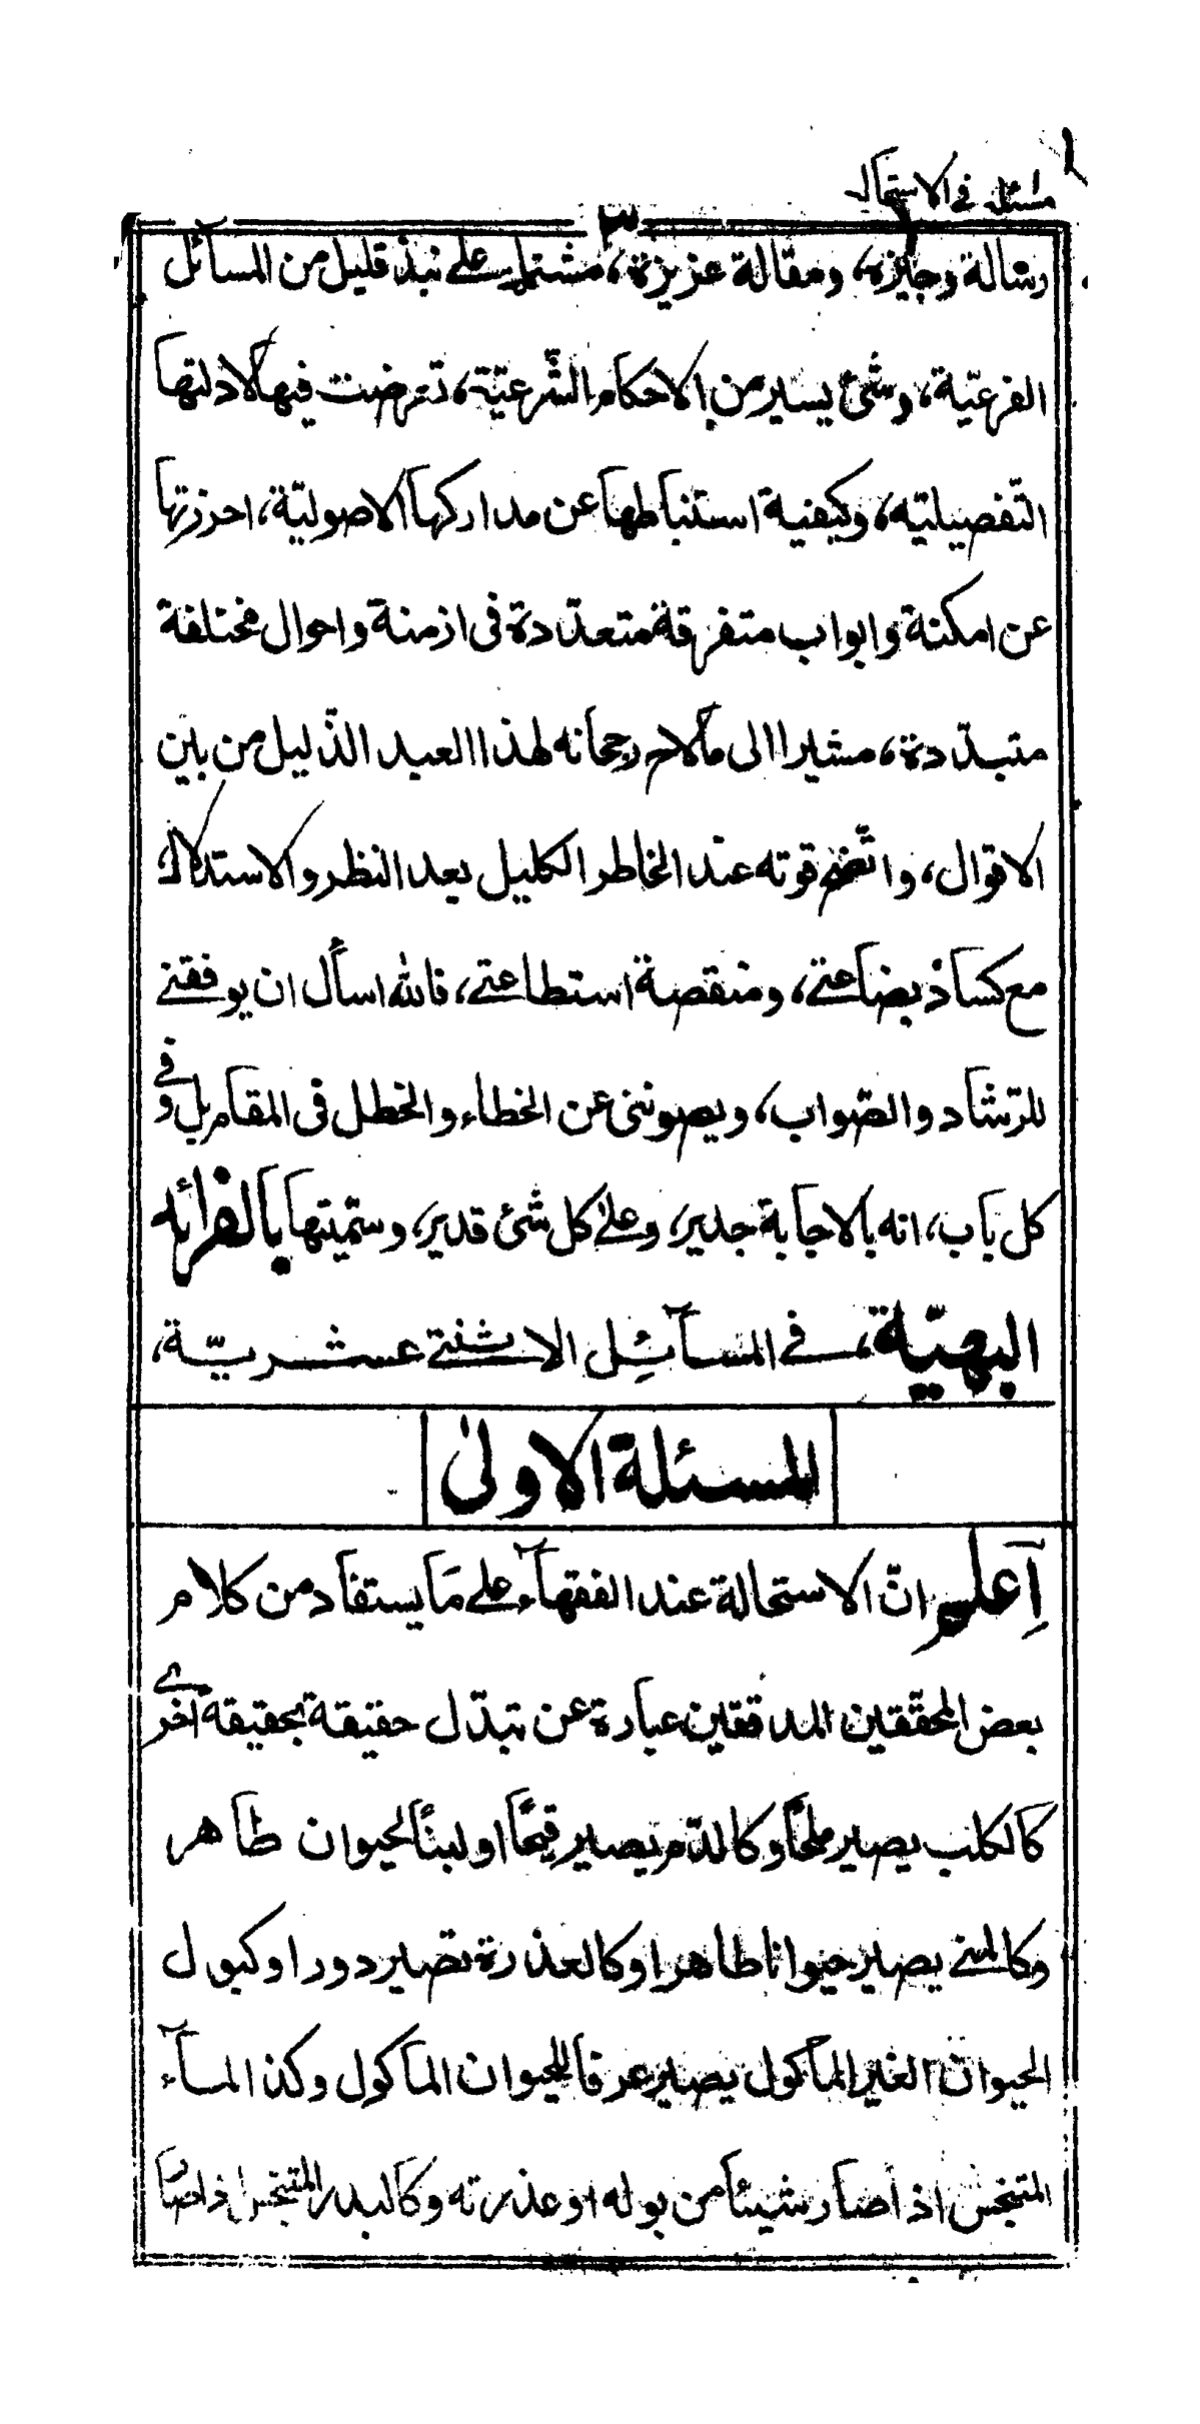 مسئلة في الاستحالة
٣
رسالة وجيزة، ومقالة عزيزة، مشتملة على نبذ قليل من المسآئل
الفرعيّة، وشئ يسير من الاحكام الشّرعيّة، تعرضت فيها لادلتها
التّفصيليّه، وكيفية استنباطها عن مداركها الاصوليّة، احرزتها
عن امكنة وابواب متفرقة متعدّدة فى ازمنة واحوال مختلفة
متبدّدة، مشيرا الى ما لاح رجحانه لهذا العبد الذّليل من بين
الاقوال، واتّضح قوته عند الخاطر الكليل بعد النظر والاستدلال،
مع كساد بضاعتى، ومنقصة استطاعتى، فالله اسأل ان يوفقنى
للرّشاد والصّواب، ويصوننى عن الخطاء والخطل فى المقام بل وفى
كل باب، انه بالاجابة جدير، وعلى كل شئ قدير، وسمّيتها بالفرائد
البهيّة، فى المسآئل الاثنتى عشريّة،
المسئلة الاولىٰ
اعلم انّ الاستحالة عند الفقهآء على ما يستفاد من كلام
بعض المحقّقين المدققين عبارة عن تبدّل حقيقة بحقيقة اخرى
كالكلب يصير ملحًا وكالدّم يصير قيحًا او لبنًا لحيوان طاهر
وكالمنى يصير حيوانا طاهرا وكالعذرة تصير دودا وكبول
الحيوان الغير المأكول يصير عرفا للحيوان المأكول وكذا المآء
المتنجس اذا صار شيئا من بوله او عذرته وكالبذر المتنجس اذا صار